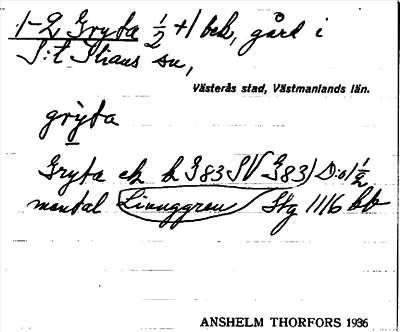 1-2 Gryta ½ + 1 bek, gård i
S:t Ilians sn,
Västerås stad, Västmanlands län.
grỳta
Gryta ek b J 83 SV J 83) D:o 1 ½
mantal Linnggren Stg 1116 bb
ANSHELM THORFORS 1936